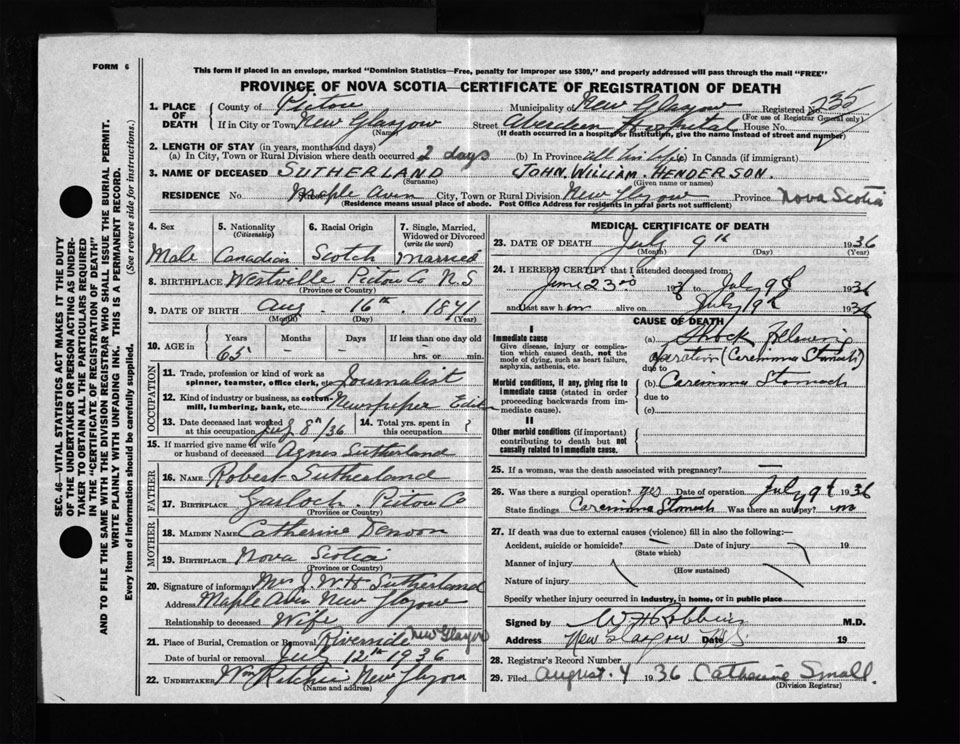 FORM 6
This form if placed in an envelope, marked "Dominion Statistics—Free, penalty for improper use $300," and properly addressed will pass through the mail "FREE"
PROVINCE OF NOVA SCOTIA—CERTIFICATE OF REGISTRATION OF DEATH
1. PLACE OF DEATH { County of Pictou Municipality of New Glasgow Registered No. 235
(For use of Registrar General only)
If in City or Town New Glasgow Street Aberdeen Hospital House No.
(Name) (If death occurred in a hospital or institution, give the name instead of street and number)
2. LENGTH OF STAY (in years, months and days)
(a) In City, Town or Rural Division where death occurred 2 days (b) In Province all his life (c) In Canada (if immigrant)
3. NAME OF DECEASED SUTHERLAND JOHN. WILLIAM. HENDERSON.
(Surname) (Given name or names)
RESIDENCE No. Maple Aven City, Town or Rural Division New Glasgow Province Nova Scotia
(Residence means usual place of abode. Post Office Address for residents in rural parts not sufficient)
4. Sex 5. Nationality (Citizenship) 6. Racial Origin 7. Single, Married, Widowed or Divorced (write the word)
Male Canadian Scotch Married
8. BIRTHPLACE Westville Pictou Co N.S
(Province or County)
9. DATE OF BIRTH Aug. 16th. 1871
(Month) (Day) (Year)
10. AGE in { Years Months Days If less than one day old
65 – – hrs. or min.
OCCUPATION
11. Trade, profession or kind of work as spinner, teamster, office clerk, etc. Journalist
12. Kind of industry or business, as cotton-mill, lumbering, bank, etc. Newspaper Editor
13. Date deceased last worked at this occupation July 8th/36 14. Total yrs. spent in this occupation }
15. If married give name of wife or husband of deceased Agnes Sutherland
FATHER
16. NAME Robert Sutherland
17. BIRTHPLACE Gairloch. Pictou Co
(Province or County)
MOTHER
18. MAIDEN NAME Catherine Denoon
19. BIRTHPLACE Nova Scotia
(Province or County)
20. Signature of informant Mrs J. W. H Sutherland
Address Maple Aven New Glasgow
Relationship to deceased Wife
21. Place of Burial, Cremation or Removal Riverside New Glasgow
Date of burial or removal July 12th 1936
22. UNDERTAKER Wm Ritchie New Glasgow
(Name and address)
MEDICAL CERTIFICATE OF DEATH
23. DATE OF DEATH July 9th 1936
(Month) (Day) (Year)
24. I HEREBY CERTIFY that I attended deceased from;
June 23rd 193 to July 9th 1936
and last saw him alive on July 19th 1936
CAUSE OF DEATH
I
Immediate cause
Give disease, injury or complication which caused death, not the mode of dying, such as heart failure, asphyxia, asthenia, etc.
(a) Shock following
operation (Carcinoma Stomach)
due to
Morbid conditions, if any, giving rise to immediate cause (stated in order proceeding backwards from immediate cause).
(b) Carcinoma Stomach
due to
(c)
II
Other morbid conditions (if important) contributing to death but not causally related to immediate cause.
25. If a woman, was the death associated with pregnancy? —
26. Was there a surgical operation? yes Date of operation July 9th 1936
State findings Carcinoma Stomach Was there an autopsy? no
27. If death was due to external causes (violence) fill in also the following:—
Accident, suicide or homicide? Date of injury 19
(State which)
Manner of injury
(How sustained)
Nature of injury
Specify whether injury occurred in industry, in home, or in public place
Signed by M.D.
Address New Glasgow NS Date 19
28. Registrar's Record Number
29. Filed August. 4 1936 Catherine Small.
(Division Registrar)
SEC. 46—VITAL STATISTICS ACT MAKES IT THE DUTY
OF THE UNDERTAKER OR PERSON ACTING AS UNDERTAKER TO OBTAIN ALL THE PARTICULARS REQUIRED
IN THE "CERTIFICATE OF REGISTRATION OF DEATH"
AND TO FILE THE SAME WITH THE DIVISION REGISTRAR WHO SHALL ISSUE THE BURIAL PERMIT.
WRITE PLAINLY WITH UNFADING INK. THIS IS A PERMANENT RECORD.
Every item of information should be carefully supplied. (See reverse side for instructions.)